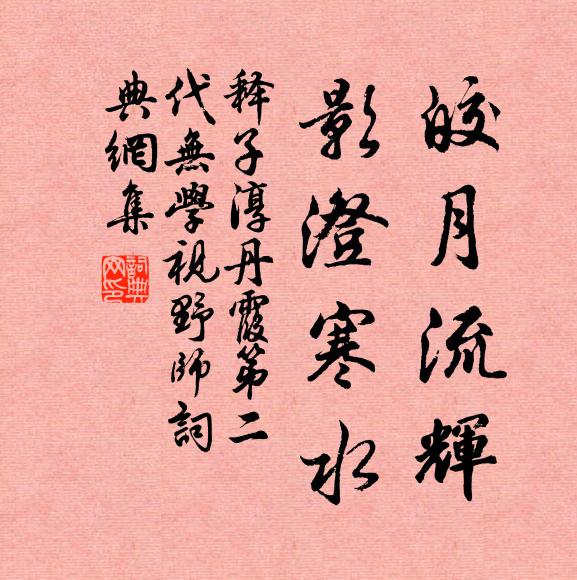 皎月流輝
影澄寒水
釋子淳丹霞第二
代無學視野師詞
典網集
詞典網印